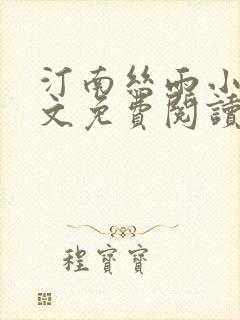 汀南絲雨小
文免費閱讀
程寶寶